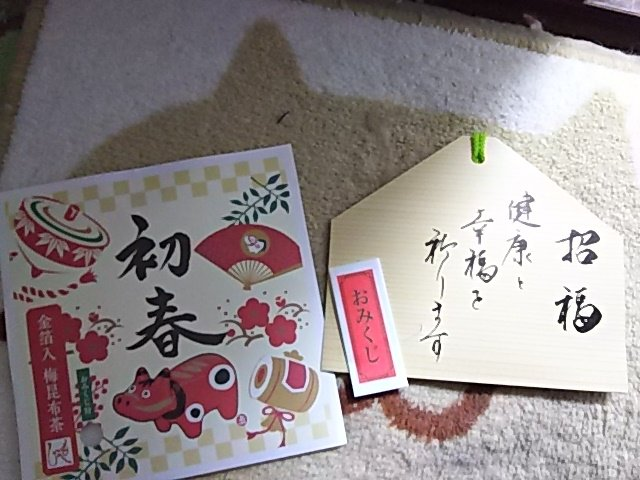 初春
金箔入 梅昆布茶
おみくじ付
おみくじ
招福
健康と
幸福を
祈ります